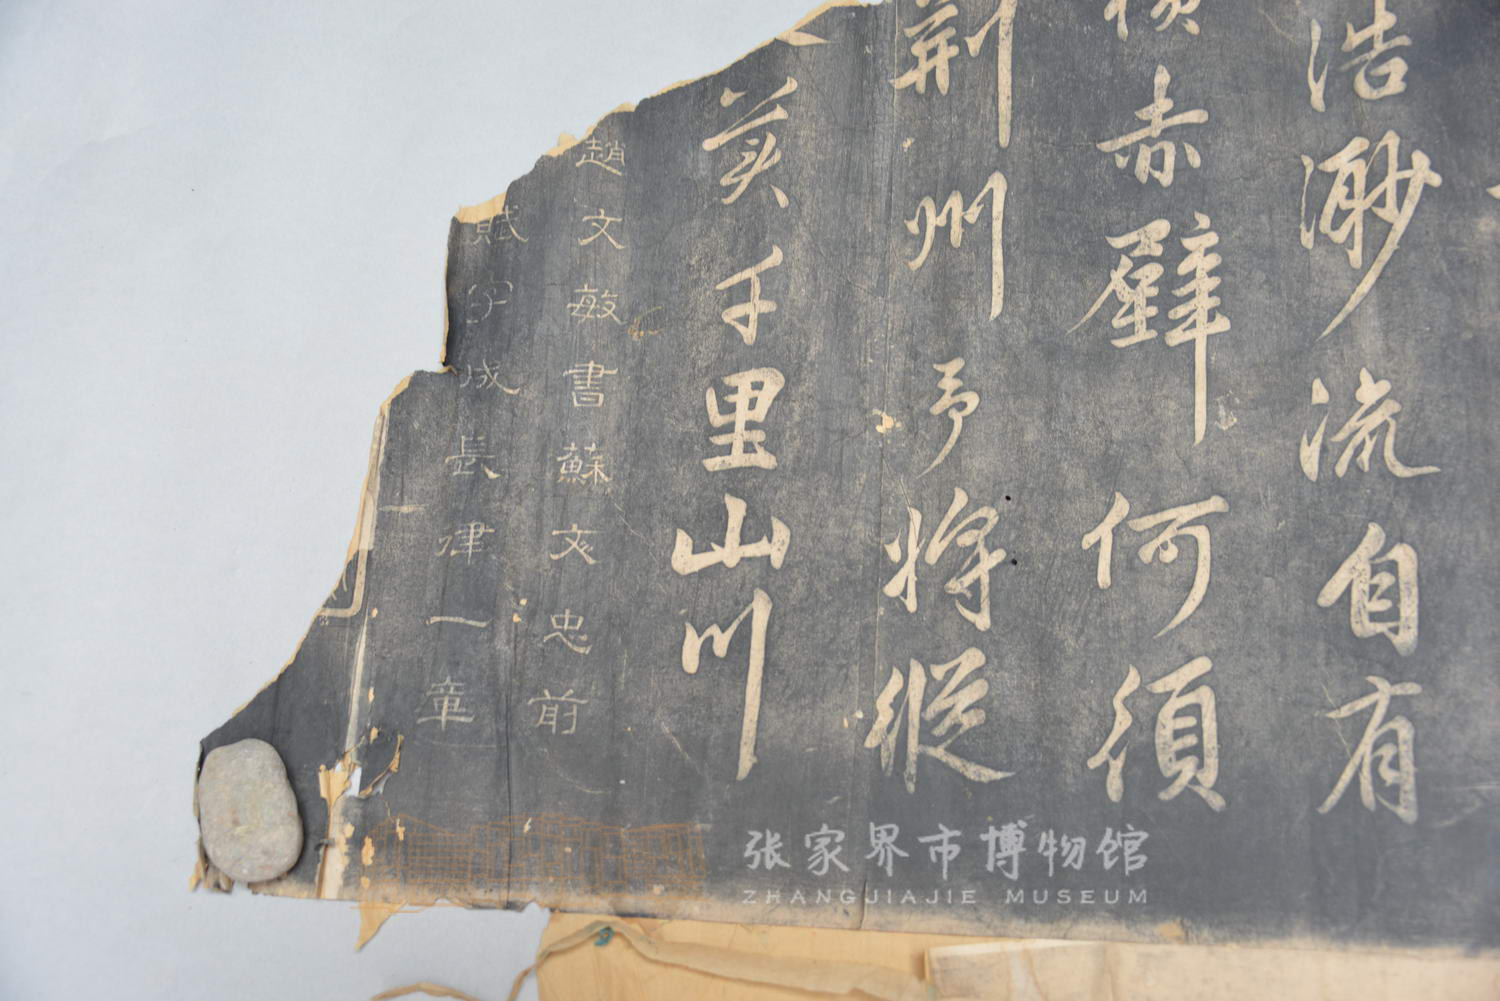 浩渺流自有
赤壁何須
荆州予将縱
美千里山川
趙文敏書蘇文忠前
賦字成長律一章
张家界市博物馆
ZHANGJIAJIE MUSEUM